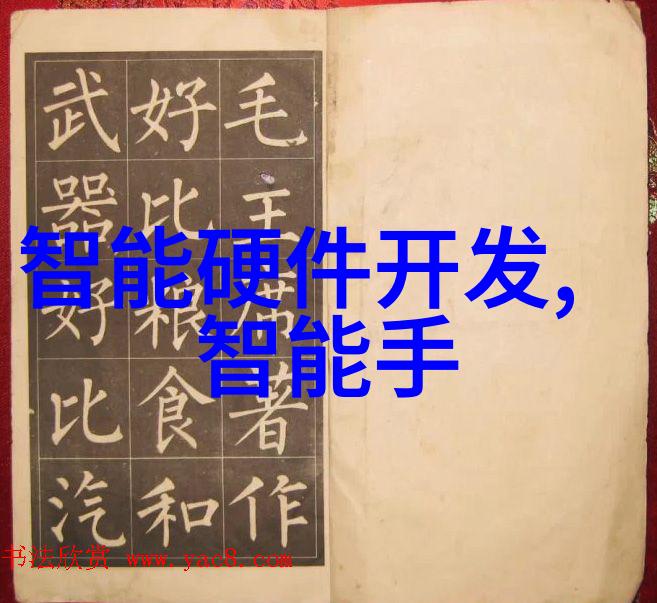 毛主席著作
好比粮食和
武器好比汽
智能硬件开发,
智能手
书法欣赏 www.yac8.com